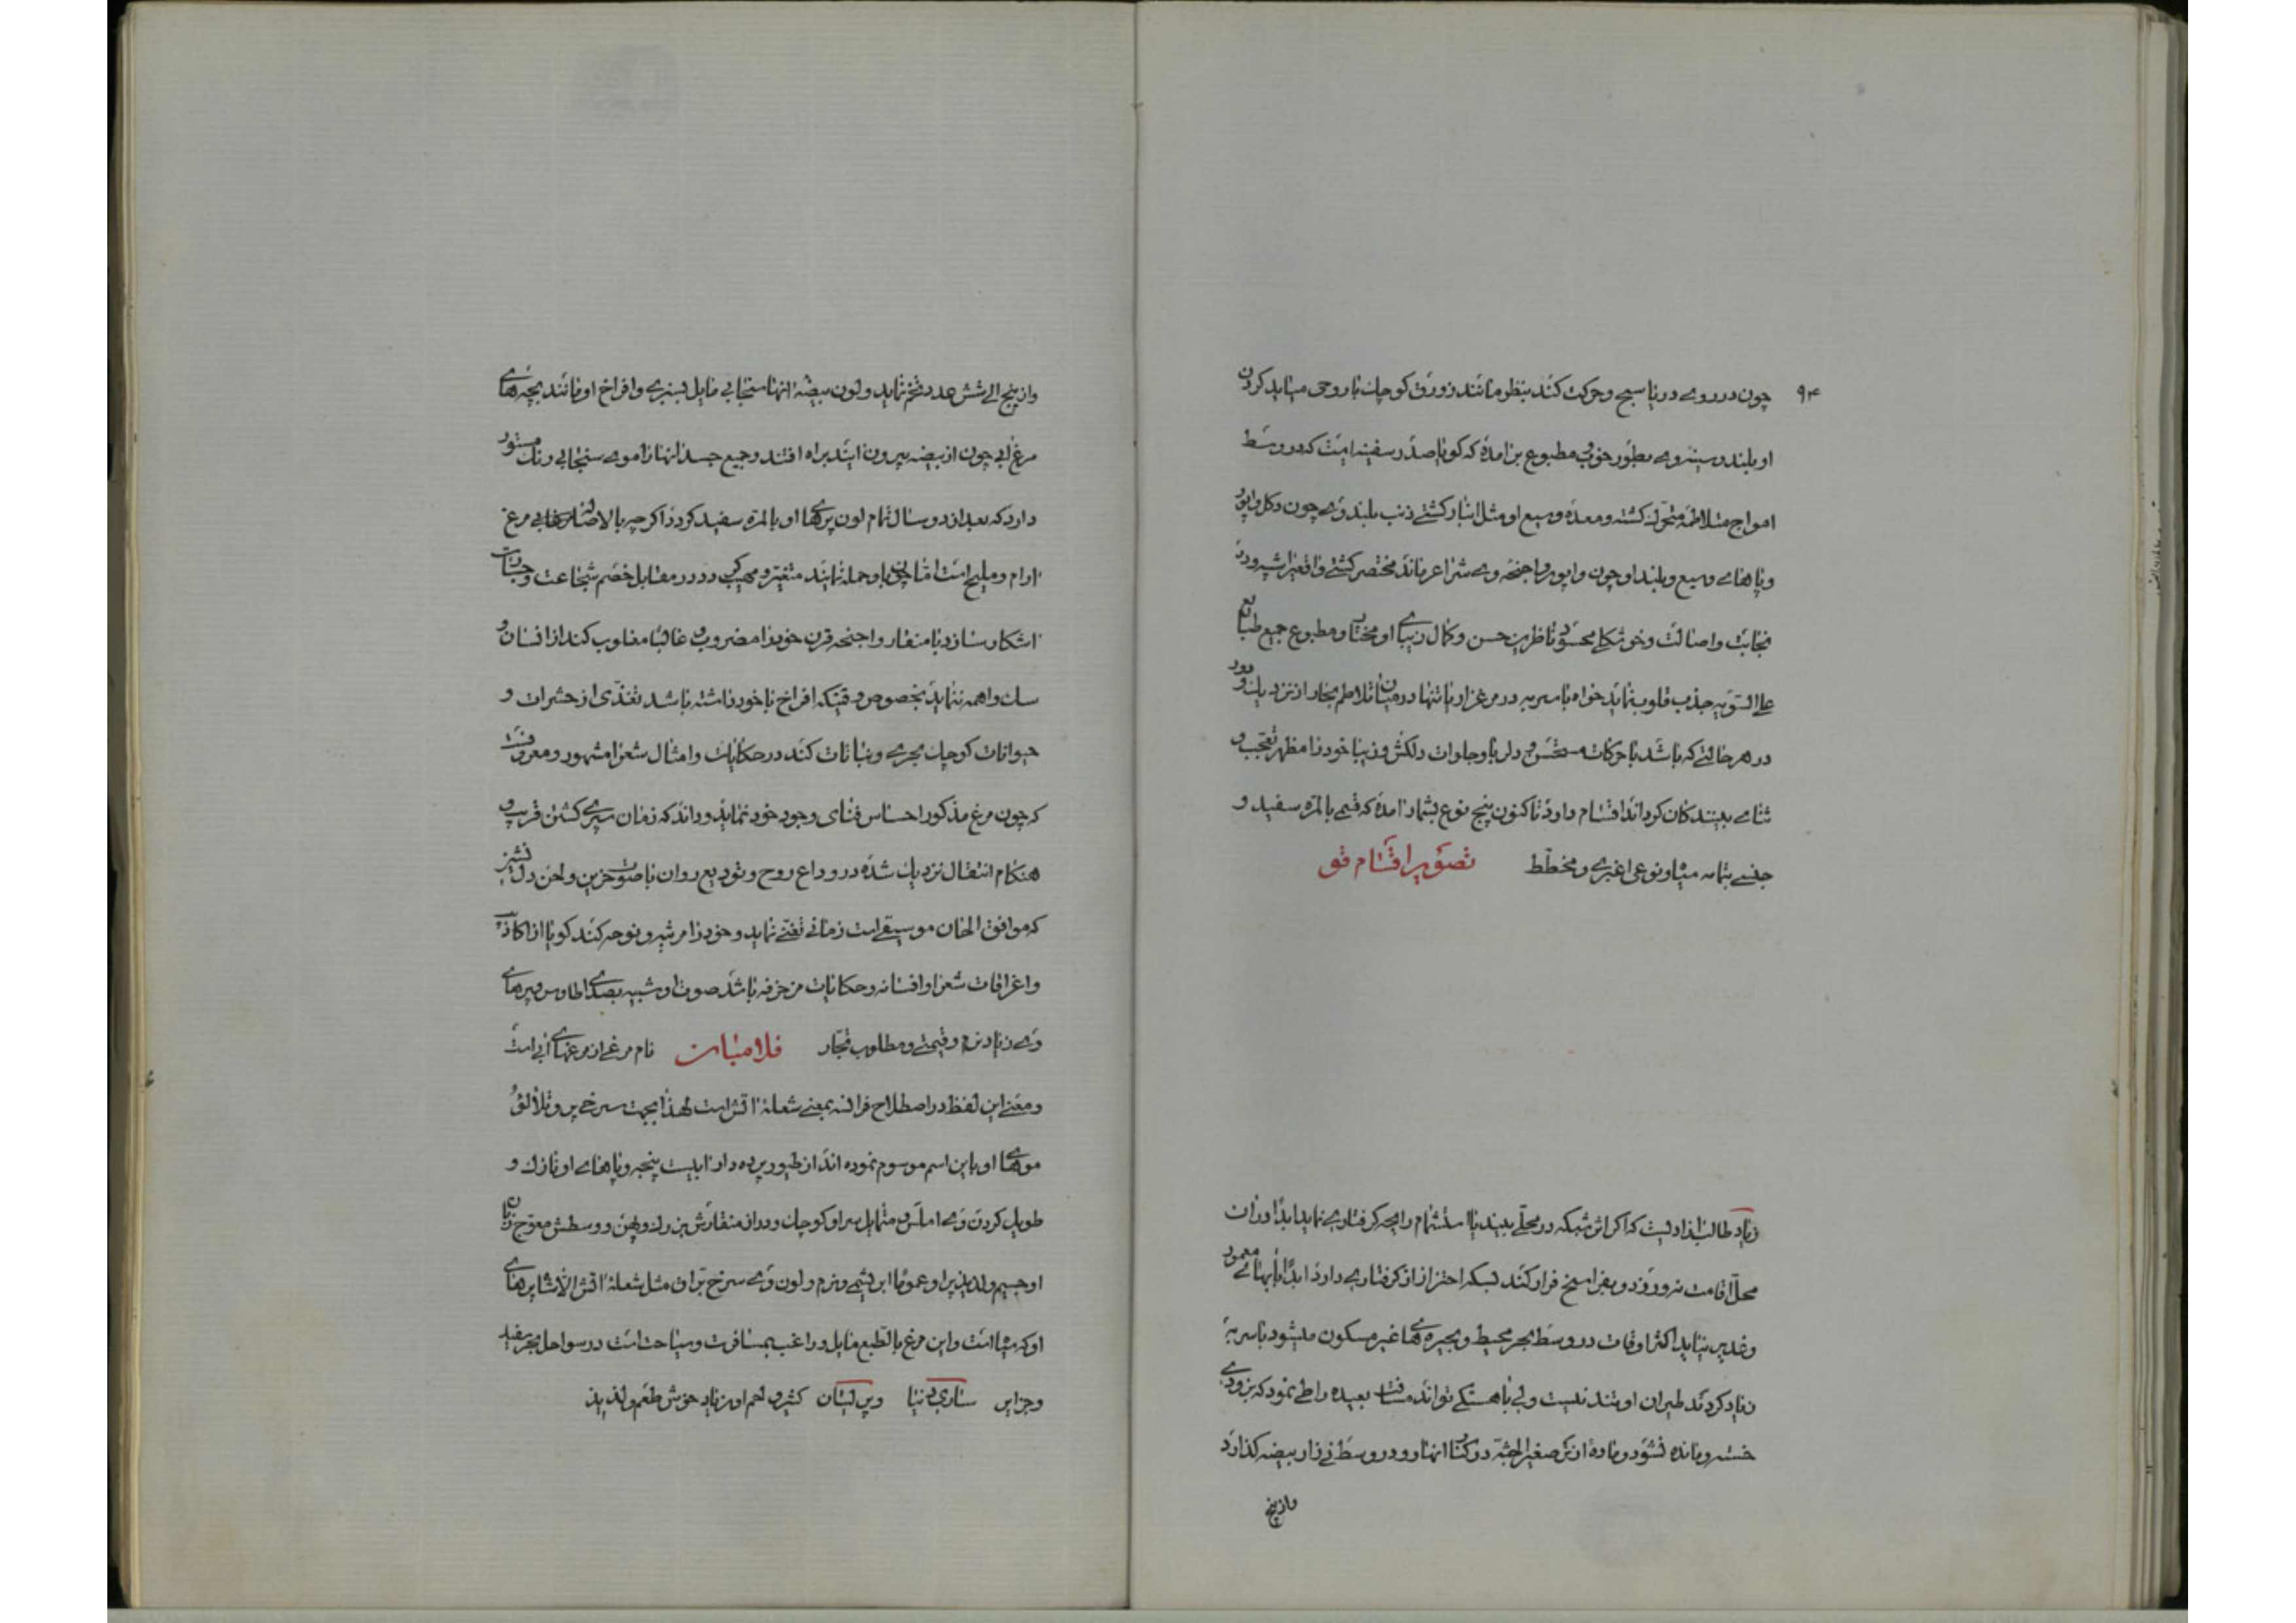 ۹۴
چون در روی دریا سبح و حرکت کند بنظر مانند زورق کوچک با روحی میاید کردن
او بلند و سینه وی بطور خوب مطبوع بر آمده که کویا صدر سفینه است که در وسط
امواج متلاطمه متحرک کشته و معده وسیع او مثل انبار کشتی ذنب بلند وی چون دکل واپور
و پاهای وسیع و بلند او چون واپور و اجنحه وی شراع ماند مختصر کشتی واقعی
نجابت و اصالت و خوشکلی محسود ناظرین حسن و کمال زیبای او مختار و مطبوع جمیع طبایع
علی السویه جذب قلوب نماید خواه باسربه در مرغزار یا تنها در میان تلاطم بخار از نزدیک و دور
در هر حالتی که باشد با حرکات مستحسن و دلربا و جلوات دلکش و زیبا خود را مظهر تعجب و
ثنای بینندکان کرداند اقسام دارد تا کنون پنج نوع بشمار آمده که قسمی بالمره سفید و
جنسی بتمامه سیاه و نوعی اغبری و مخطط تصویر اقسام قو
زیاد طالب آزادیست که اکر اثر شبکه در محلی بیند یا استشمام رایحه کرفتاری نماید ابدا در آن
محل اقامت نه ورزد و بفراسخ فرار کند لیسکه احتراز از کرفتاری دارد ابدا بابهای معمور
و غدیر نیاید اکثر اوقات در وسط بحر محیط و بحیره ها غیر مسکون میشود باسربه
زیاد کردند طیران او تند نیست ولی باهستکی تواند مسافت بعیده را طی نمود که بزودی
خسته و مانده نشود و ماده از نر صغیر الجثه در کنار انهار و در وسط نی زار بیضه کذارد
و از پنج
و از پنج الی شش عدد تخم نماید و لون بیضه آنها سنجابی مایل بسبزی و افراخ او مانند بچه های
مرغابی چون از بیضه بیرون آیند براه افتند و جمیع جسد آنها را موی سنجابی رنک مستور
دارد که بعد از دو سال تمام لون پرهای او بالمره سفید کردد اکرچه بالاصاله مرغ
آرام و ملیح است اما چون باو حمله نمایند متغیر و مهیب کردد و در مقابل خصم شجاعت و جسارت
آشکار سازد با منقار و اجنحه قرن خود را مضروب و غالبا مغلوب کند از انسان و
سک واهمه ننماید بخصوص وقتیکه افراخ با خود داشته باشد تغذی از حشرات و
حیوانات کوچک بحری و نباتات کند در حکایات و امثال شعرا مشهور و معروفست
که چون مرغ مذکور احساس فنای وجود خود نماید و داند که زمان سپری کشتن قریب و
هنکام انتقال نزدیک شده در وداع روح و تودیع روان با صوت حزین و لحن دلنشین
که موافق الحان موسیقی است زمانی تغنی نماید و خود را مرثیه و نوحه کند کویا از اکاذیب
و اغراقات شعرا و افسانه و حکایات مزخرفه باشد صوت او شبیه بصدای طاوس و پرهای
وی زیاد نرم و قیمتی و مطلوب تجار فلامبان نام مرغی از مرغهای آبی است
و معنی این لفظ در اصطلاح فرانسه بمعنی شعله آتش است لهذا بجهت سرخی پر و تلألؤ
موهای او باین اسم موسوم نموده اند از طیور پرده دار پنجه و پاهای او نازک و
طویل کردن وی املس و متمایل سر او کوچک و دراز منقارش بزرک و پهن و وسطش معوج زبان
او جسیم و لذیذ پر او عموما ابریشمی و نرم و لون وی سرخ براق مثل شعله آتش الا شاپرهای
او که سیاه است و این مرغ بالطبع مایل و راغب بمسافرت و سیاحت است در سواحل بحر سفید
و جزایر ساردینا و سیسیلیان کثیر و لحم او زیاد خوش طعم و لذیذ